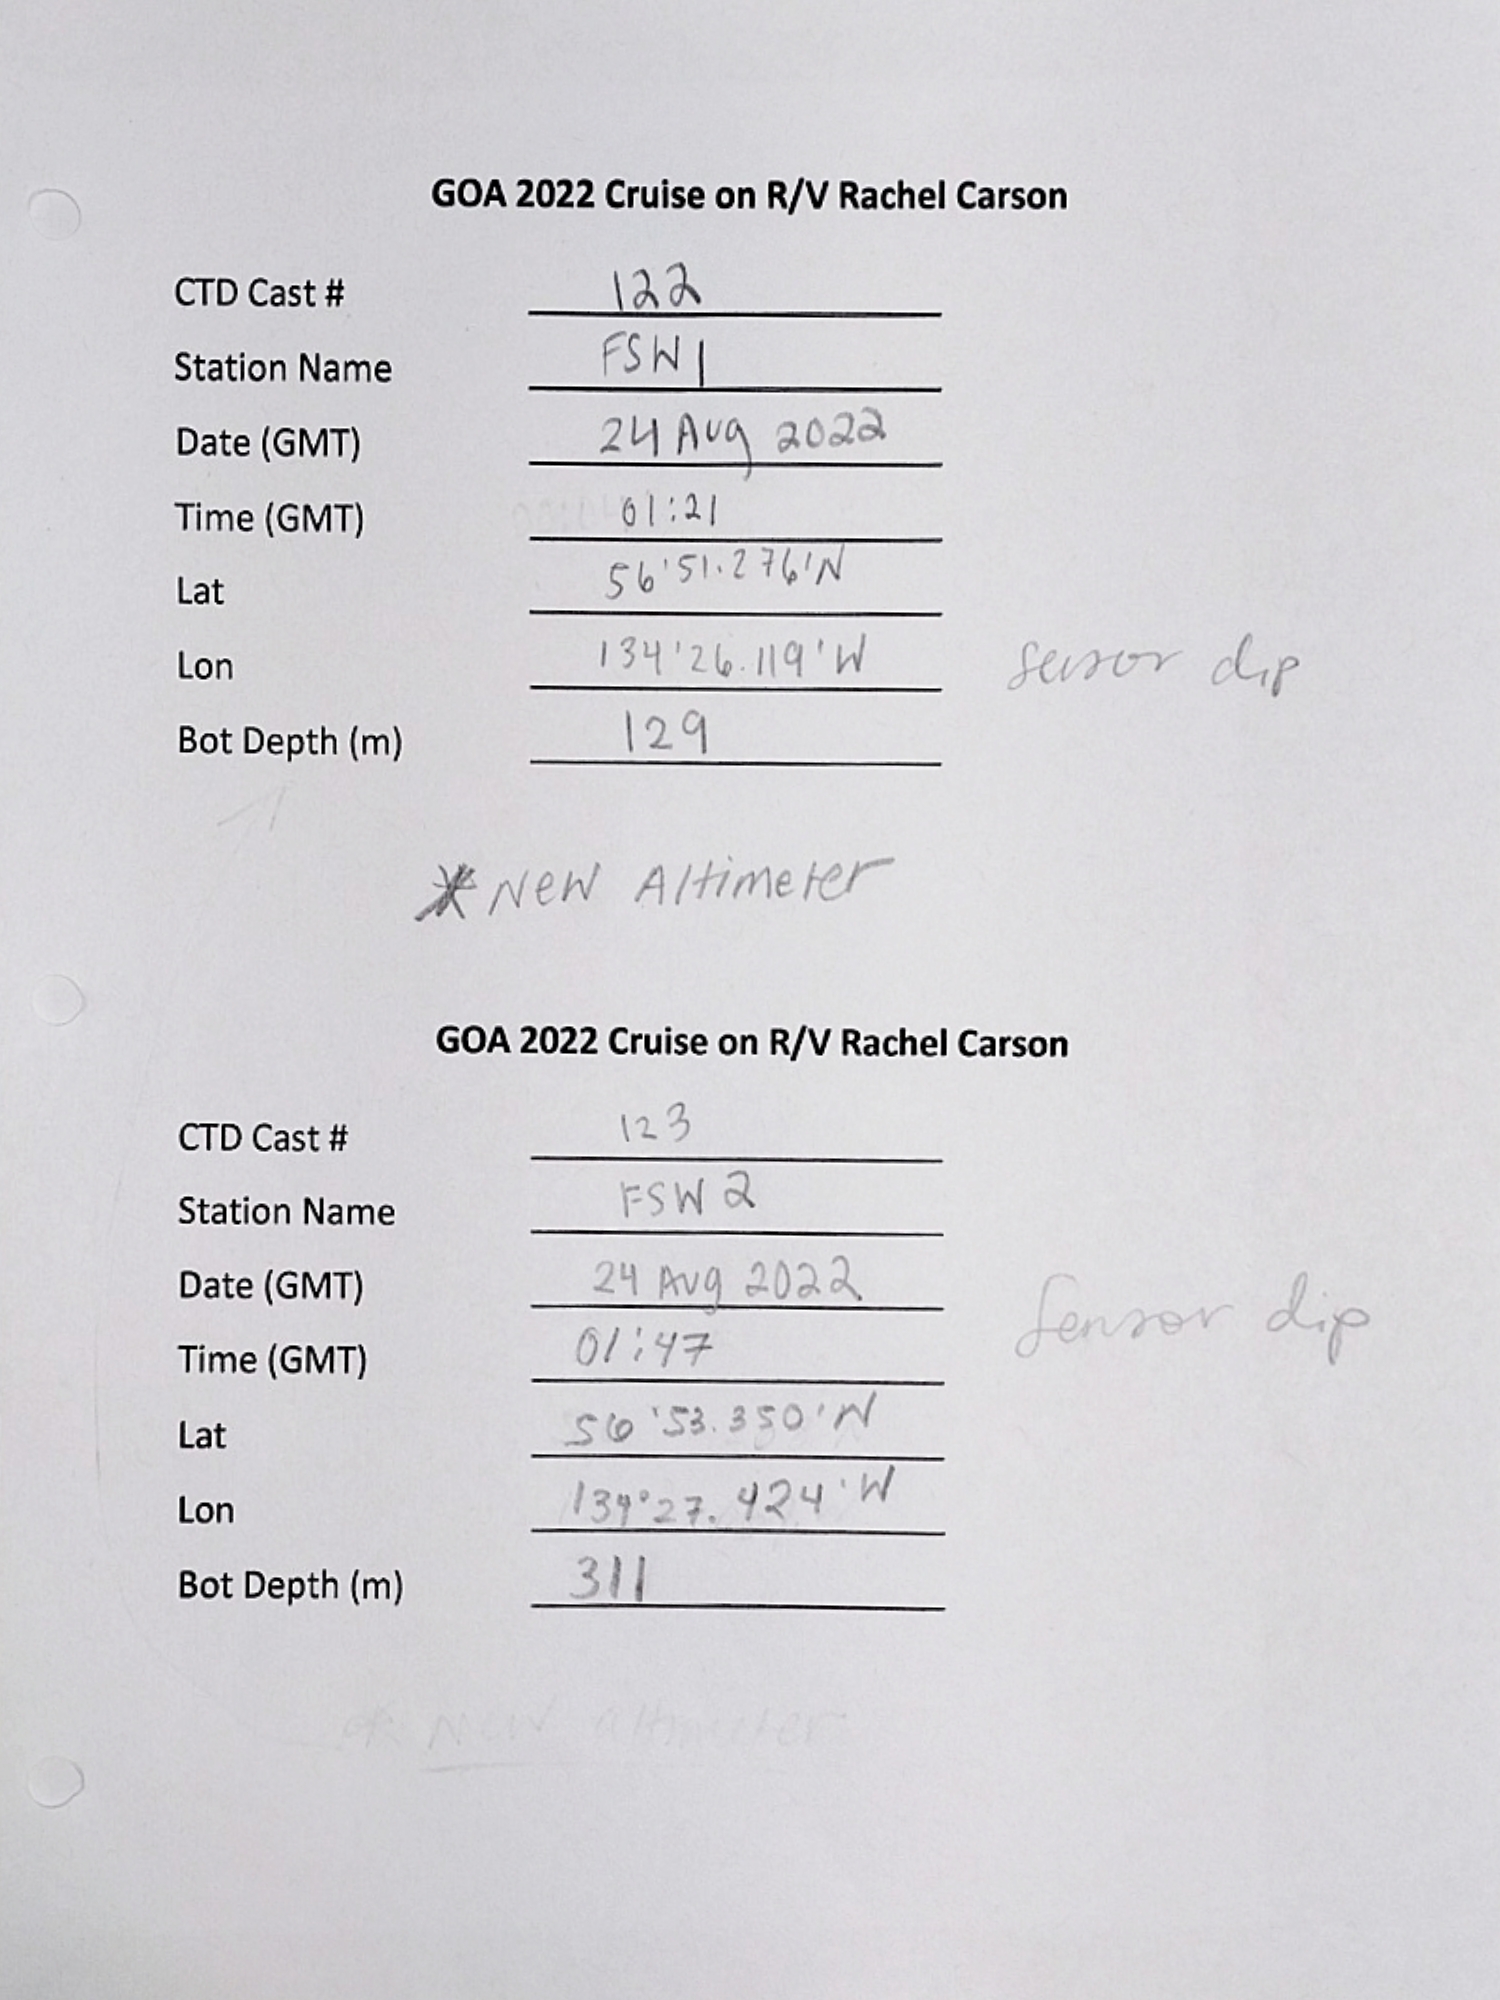 GOA 2022 Cruise on R/V Rachel Carson
CTD Cast # 122
Station Name FSW1
Date (GMT) 24 Aug 2022
Time (GMT) 01:21
Lat 56'51.276'N
Lon 134'26.119'W sensor dip
Bot Depth (m) 129
* New Altimeter
GOA 2022 Cruise on R/V Rachel Carson
CTD Cast # 123
Station Name FSW 2
Date (GMT) 24 Aug 2022
Time (GMT) 01:47 Sensor dip
Lat 56'53.350'N
Lon 134°27.424'W
Bot Depth (m) 311
* New Altimeter